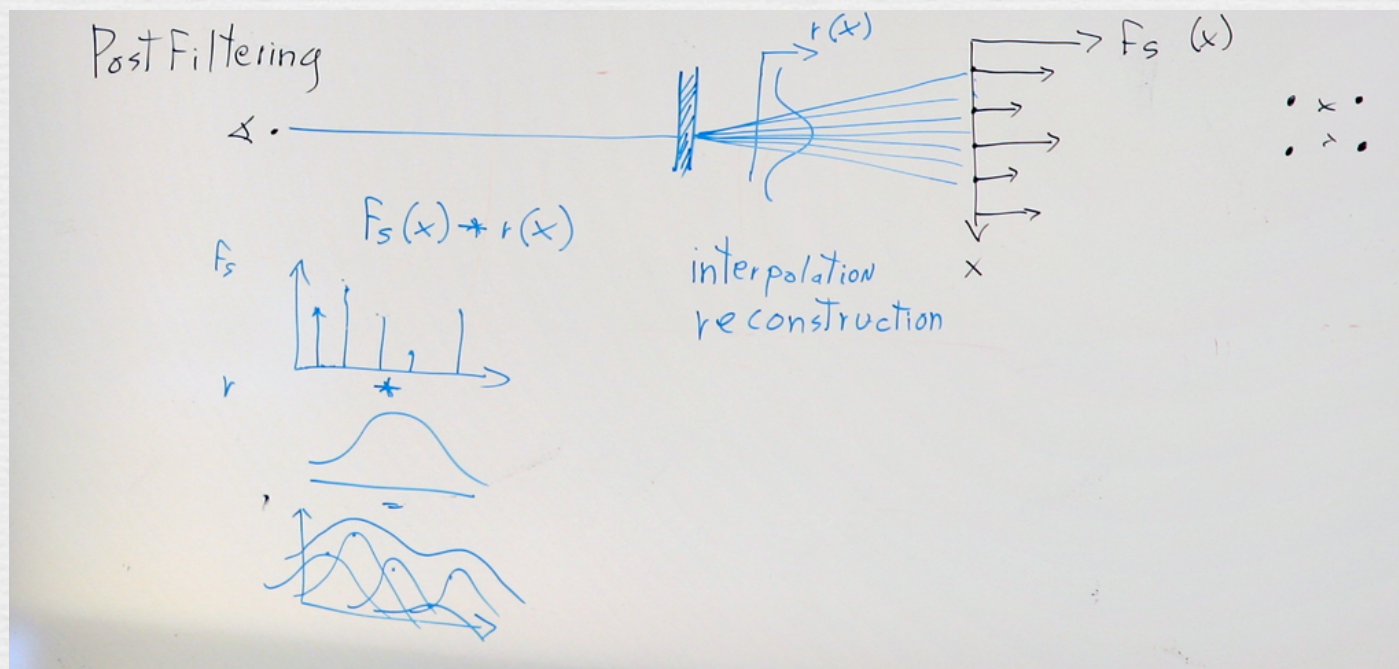 Post Filtering
r(x)
Fs (x)
Fs(x) * r(x)
x
interpolation
reconstruction
Fs
r
*
=